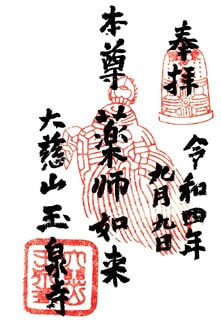 奉拝
令和四年
九月九日
本尊 薬師如来
大慈山玉泉寺